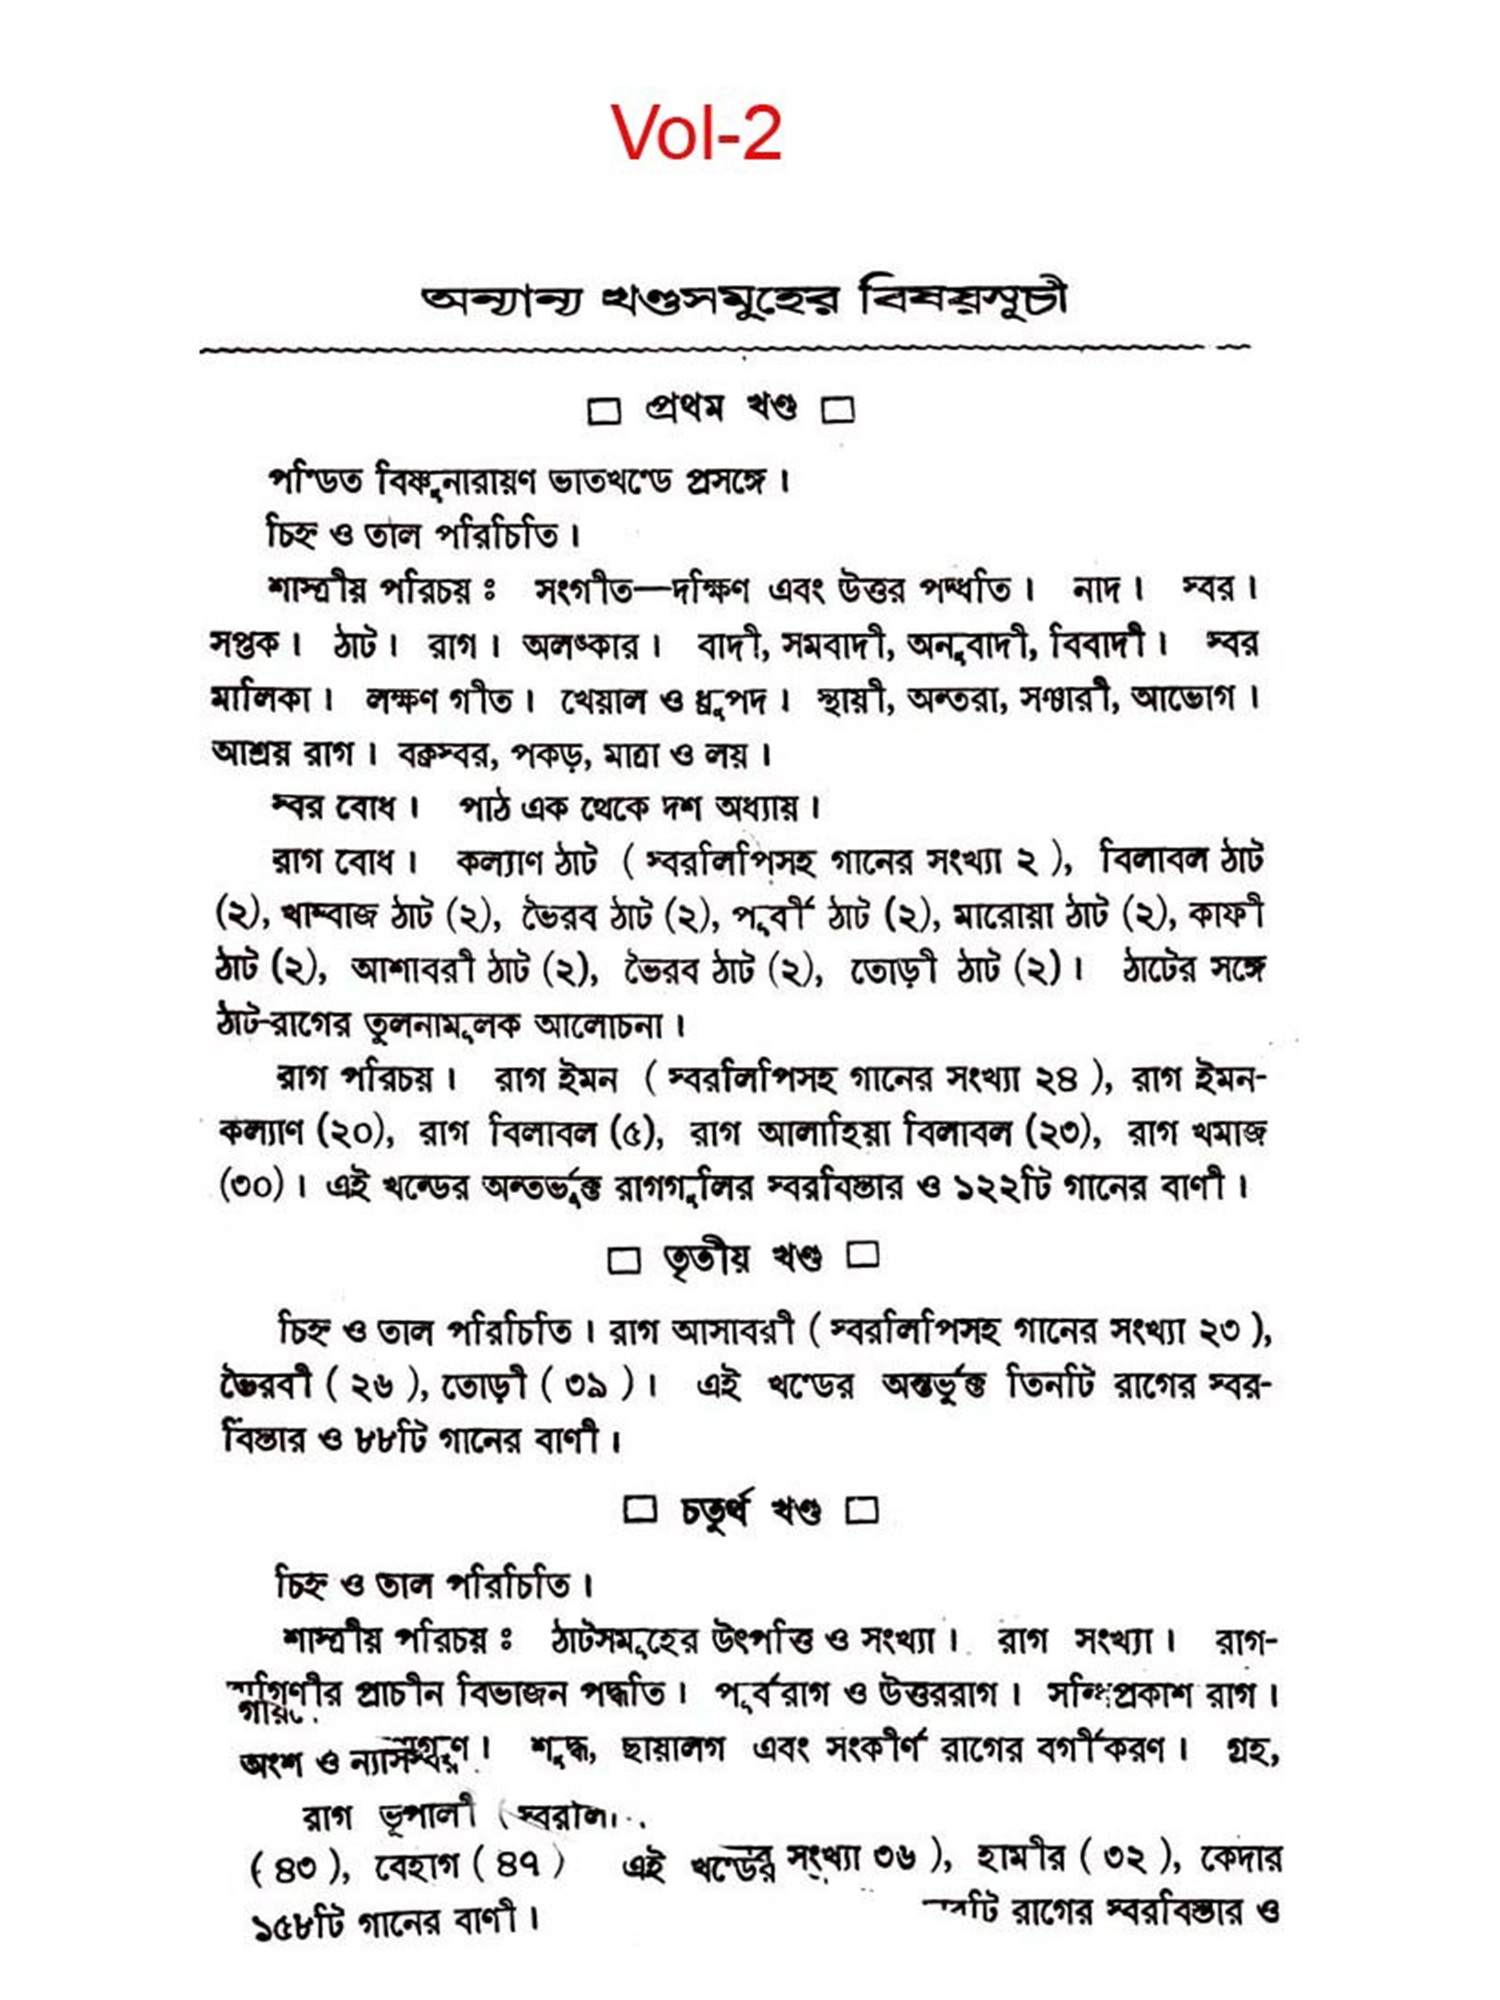 Vol-2
অন্যান্য খণ্ডসমূহের বিষয়সূচী
□ প্রথম খণ্ড □
পণ্ডিত বিষ্ণুনারায়ণ ভাতখণ্ডে প্রসঙ্গে।
চিহ্ন ও তাল পরিচিতি।
শাস্ত্রীয় পরিচয়ঃ সংগীত—দক্ষিণ এবং উত্তর পদ্ধতি। নাদ। স্বর।
সপ্তক। ঠাট। রাগ। অলঙ্কার। বাদী, সমবাদী, অনুবাদী, বিবাদী। স্বর
মালিকা। লক্ষণ গীত। খেয়াল ও ধ্রুপদ। স্থায়ী, অন্তরা, সঞ্চারী, আভোগ।
আশ্রয় রাগ। বক্রস্বর, পকড়, মাত্রা ও লয়।
স্বর বোধ। পাঠ এক থেকে দশ অধ্যায়।
রাগ বোধ। কল্যাণ ঠাট ( স্বরলিপিসহ গানের সংখ্যা ২ ), বিলাবল ঠাট
(২), খাম্বাজ ঠাট (২), ভৈরব ঠাট (২), পূর্বী ঠাট (২), মারোয়া ঠাট (২), কাফী
ঠাট (২), আশাবরী ঠাট (২), ভৈরব ঠাট (২), তোড়ী ঠাট (২)। ঠাটের সঙ্গে
ঠাট-রাগের তুলনামূলক আলোচনা।
রাগ পরিচয়। রাগ ইমন ( স্বরলিপিসহ গানের সংখ্যা ২৪ ), রাগ ইমন-
কল্যাণ (২০), রাগ বিলাবল (৫), রাগ আলাহিয়া বিলাবল (২৩), রাগ খমাজ
(৩০)। এই খন্ডের অন্তর্ভুক্ত রাগগুলির স্বরবিস্তার ও ১২২টি গানের বাণী।
□ তৃতীয় খণ্ড □
চিহ্ন ও তাল পরিচিতি। রাগ আসাবরী ( স্বরলিপিসহ গানের সংখ্যা ২৩ ),
ভৈরবী ( ২৬ ), তোড়ী ( ৩৯ )। এই খণ্ডের অন্তর্ভুক্ত তিনটি রাগের স্বর-
বিস্তার ও ৮৮টি গানের বাণী।
□ চতুর্থ খণ্ড □
চিহ্ন ও তাল পরিচিতি।
শাস্ত্রীয় পরিচয়ঃ ঠাটসমূহের উৎপত্তি ও সংখ্যা। রাগ সংখ্যা। রাগ-
প্রাচীন বিভাজন পদ্ধতি। পূর্বরাগ ও উত্তররাগ। সন্ধিপ্রকাশ রাগ।
শুদ্ধ, ছায়ালগ এবং সংকীর্ণ রাগের বর্গীকরণ। গ্রহ,
অংশ ও ন্যাসস্বর।
রাগ ভূপালী
সংখ্যা ৩৬ ), হামীর ( ৩২ ), কেদার
( ৪৩ ), বেহাগ ( ৪৭ ) এই খণ্ডের
রাগের স্বরবিস্তার ও
১৫৮টি গানের বাণী।